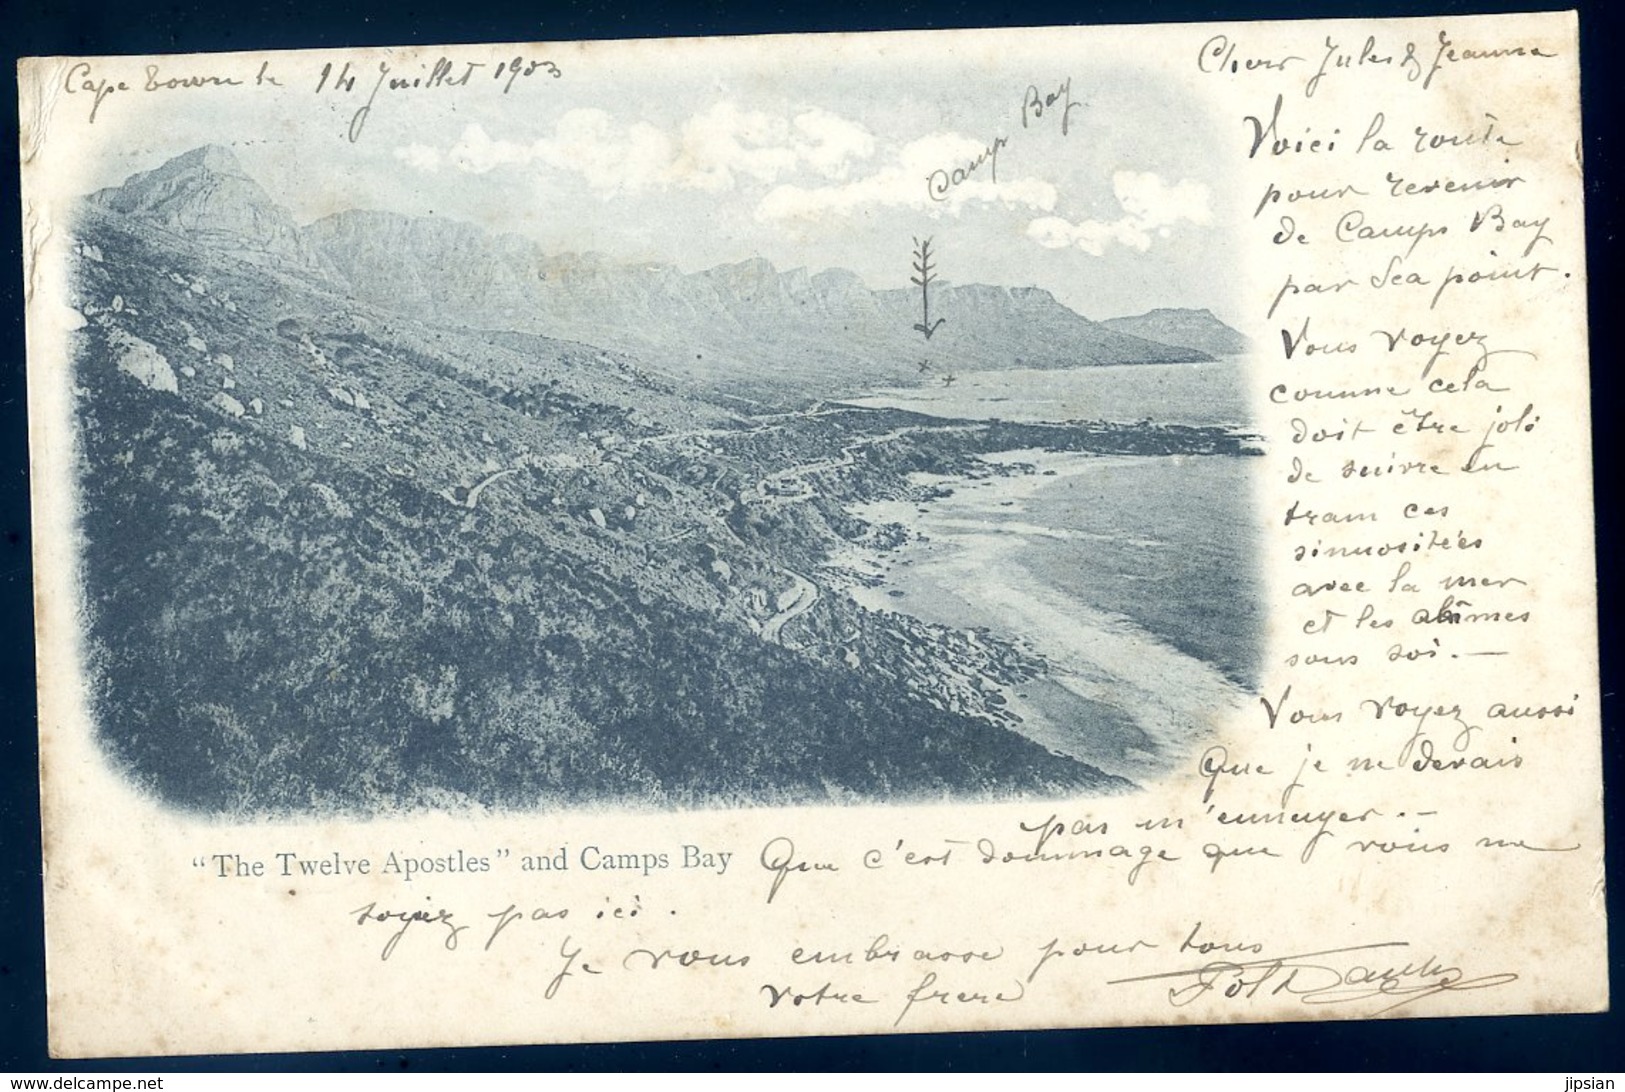 Cape Town le 14 Juillet 1903
Camp Bay
Chers Jules & Jeanne
Voici la route
pour revenir
de Camps Bay
par Sea point.
Vous voyez
comme cela
doit être joli
de suivre en
tram ces
sinuosités
avec la mer
et les abîmes
sous soi. —
Vous voyez aussi
Que je ne devais
pas m'ennuyer. —
"The Twelve Apostles" and Camps Bay
Que c'est dommage que vous ne
soyez pas ici.
Je vous embrasse pour tous
Votre frere
www.delcampe.net
jipsian